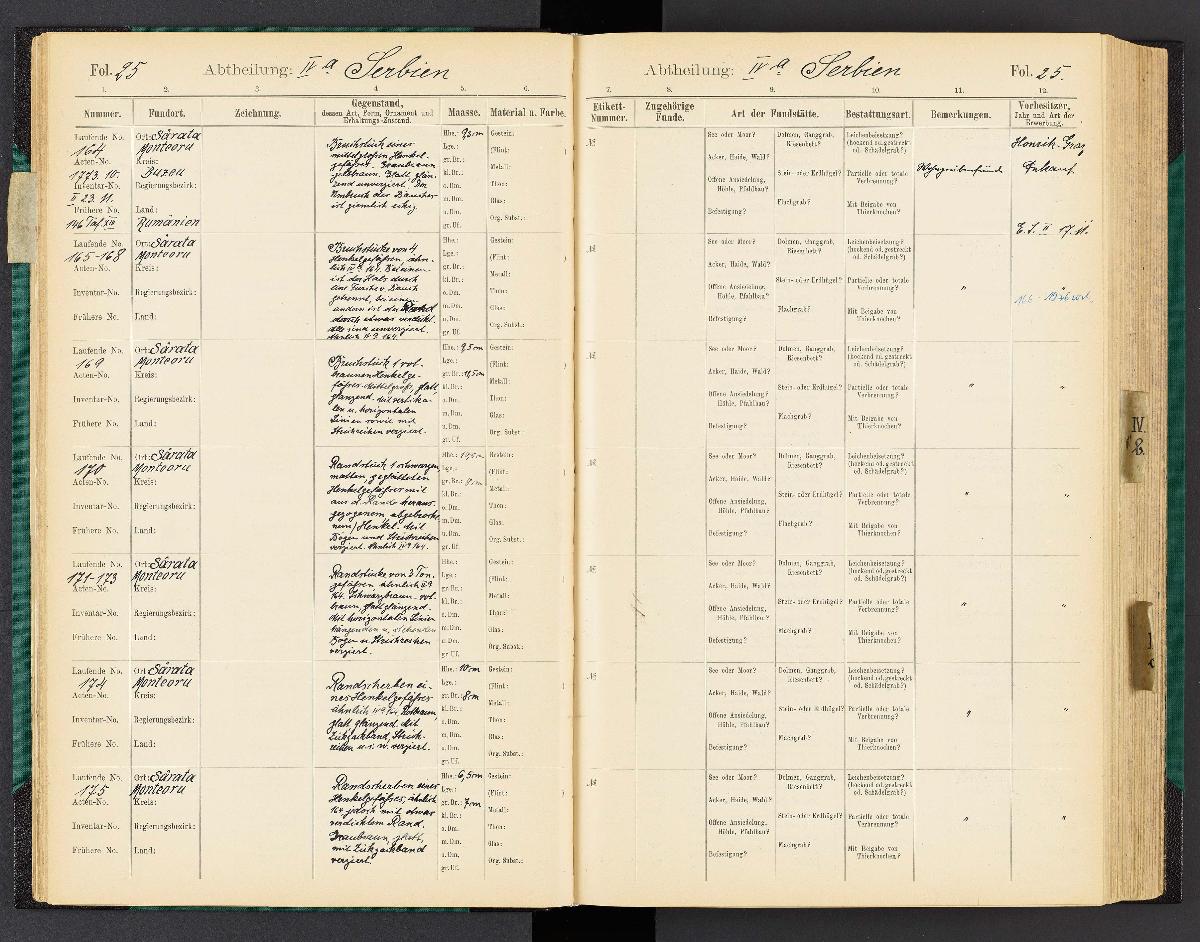 Fol. 25 Abtheilung: IV a Serbien
1. 2. 3. 4. 5. 6.
Nummer. Fundort. Zeichnung. Gegenstand, dessen Art, Form, Ornament und Erhaltungs-Zustand. Maasse. Material u. Farbe.
Laufende No. 164
Acten-No. 1773. 10.
Inventar-No. II 23. 11.
Frühere No. 146 Taf. XIII
Ort: Sărata Monteoru
Kreis: Buzeu
Regierungsbezirk:
Land: Rumänien
Bruchstück eines
mittelgroßen Henkel-
gefäßes. Graubraun
gelbbraun. Glatt glän-
zend unverziert. Der
Umbruch des Bauches
ist ziemlich eckig.
Hhe.: 9,3 cm
Lge.:
gr. Br.:
kl. Br.:
o. Dm.
m. Dm.
u. Dm.
gr. Uf.
Gestein:
(Flint: )
Metall:
Thon:
Glas:
Org. Subst.:
Laufende No. 165-168
Acten-No.
Inventar-No.
Frühere No.
Ort: Sărata Monteoru
Kreis:
Regierungsbezirk:
Land:
Bruchstücke von 4
Henkelgefäßen, ähn-
lich IV a 164. Bei einem
ist der Hals durch
eine Furche v. Bauch
getrennt, bei einem
andern ist der Rand
durch etwas verdickt.
Alle sind unverziert.
Ähnlich IV a 164.
Hhe.:
Lge.:
gr. Br.:
kl. Br.:
o. Dm.
m. Dm.
u. Dm.
gr. Uf.
Gestein:
(Flint: )
Metall:
Thon:
Glas:
Org. Subst.:
Laufende No. 169
Acten-No.
Inventar-No.
Frühere No.
Ort: Sărata Monteoru
Kreis:
Regierungsbezirk:
Land:
Bruchstück 1 rot-
braunen Henkelge-
fäßes. Mittelgroß, glatt,
glänzend. Mit vertika-
len u. horizontalen
Linien sowie mit
Strichreihen verziert.
Hhe.: 9,5 cm
Lge.:
gr. Br.: 11,5 cm
kl. Br.:
o. Dm.
m. Dm.
u. Dm.
gr. Uf.
Gestein:
(Flint: )
Metall:
Thon:
Glas:
Org. Subst.:
Laufende No. 170
Acten-No.
Inventar-No.
Frühere No.
Ort: Sărata Monteoru
Kreis:
Regierungsbezirk:
Land:
Randstück 1 schwarzen
matten, geglätteten
Henkelgefäßes mit
aus d. Rande heraus-
gezogenem abgebroche-
nem) Henkel. Mit
Bogen und Strichreihen
verziert. Ähnlich IV a 164.
Hhe.: 10,5 cm
Lge.:
gr. Br.: 9 cm
kl. Br.:
o. Dm.
m. Dm.
u. Dm.
gr. Uf.
Gestein:
(Flint: )
Metall:
Thon:
Glas:
Org. Subst.:
Laufende No. 171-173
Acten-No.
Inventar-No.
Frühere No.
Ort: Sărata Monteoru
Kreis:
Regierungsbezirk:
Land:
Randstücke von 3 Ton-
gefäßen ähnlich IV a
164. Schwarzbraun - rot-
braun, glatt glänzend.
Mit horizontalen Linien
hängenden u. stehenden
Bogen u. Strichreihen
verziert.
Hhe.:
Lge.:
gr. Br.:
kl. Br.:
o. Dm.
m. Dm.
u. Dm.
gr. Uf.
Gestein:
(Flint: )
Metall:
Thon:
Glas:
Org. Subst.:
Laufende No. 174
Acten-No.
Inventar-No.
Frühere No.
Ort: Sărata Monteoru
Kreis:
Regierungsbezirk:
Land:
Randscherben ei-
nes Henkelgefäßes
ähnlich IV a 164. Rotbraun,
glatt glänzend. Mit
Zickzackband, Strich-
reihen u. s. w. verziert.
Hhe.: 10 cm
Lge.:
gr. Br.: 8 cm
kl. Br.:
o. Dm.
m. Dm.
u. Dm.
gr. Uf.
Gestein:
(Flint: )
Metall:
Thon:
Glas:
Org. Subst.:
Laufende No. 175
Acten-No.
Inventar-No.
Frühere No.
Ort: Sărata Monteoru
Kreis:
Regierungsbezirk:
Land:
Randscherben eines
Henkelgefäßes, ähnlich
164 jedoch mit etwas
verdicktem Rand.
Graubraun, glatt,
mit Zickzackband
verziert.
Hhe.: 6,5 cm
Lge.:
gr. Br.: 7 cm
kl. Br.:
o. Dm.
m. Dm.
u. Dm.
gr. Uf.
Gestein:
(Flint: )
Metall:
Thon:
Glas:
Org. Subst.:
Abtheilung: IV a Serbien Fol. 25.
7. 8. 9. 10. 11. 12.
Etikett-Nummer. Zugehörige Funde. Art der Fundstätte. Bestattungsart. Bemerkungen. Vorbesitzer, Jahr und Art der Erwerbung.
№
See oder Moor? Dolmen, Ganggrab, Riesenbett? Leichenbeisetzung? (hockend od. gestreckt od. Schädelgrab?)
Acker, Haide, Wald?
Offene Ansiedelung, Höhle, Pfahlbau? Stein- oder Erdhügel? Partielle oder totale Verbrennung?
Flachgrab? Mit Beigabe von Thierknochen?
Befestigung?
Honsik-Graz
Ankauf
E. J. II 17. 11.
№
See oder Moor? Dolmen, Ganggrab, Riesenbett? Leichenbeisetzung? (hockend od. gestreckt od. Schädelgrab?)
Acker, Haide, Wald?
Offene Ansiedelung, Höhle, Pfahlbau? Stein- oder Erdhügel? Partielle oder totale Verbrennung?
Flachgrab? Mit Beigabe von Thierknochen?
Befestigung?
" "
№
See oder Moor? Dolmen, Ganggrab, Riesenbett? Leichenbeisetzung? (hockend od. gestreckt od. Schädelgrab?)
Acker, Haide, Wald?
Offene Ansiedelung, Höhle, Pfahlbau? Stein- oder Erdhügel? Partielle oder totale Verbrennung?
Flachgrab? Mit Beigabe von Thierknochen?
Befestigung?
" "
№
See oder Moor? Dolmen, Ganggrab, Riesenbett? Leichenbeisetzung? (hockend od. gestreckt od. Schädelgrab?)
Acker, Haide, Wald?
Offene Ansiedelung, Höhle, Pfahlbau? Stein- oder Erdhügel? Partielle oder totale Verbrennung?
Flachgrab? Mit Beigabe von Thierknochen?
Befestigung?
" "
№
See oder Moor? Dolmen, Ganggrab, Riesenbett? Leichenbeisetzung? (hockend od. gestreckt od. Schädelgrab?)
Acker, Haide, Wald?
Offene Ansiedelung, Höhle, Pfahlbau? Stein- oder Erdhügel? Partielle oder totale Verbrennung?
Flachgrab? Mit Beigabe von Thierknochen?
Befestigung?
" "
№
See oder Moor? Dolmen, Ganggrab, Riesenbett? Leichenbeisetzung? (hockend od. gestreckt od. Schädelgrab?)
Acker, Haide, Wald?
Offene Ansiedelung, Höhle, Pfahlbau? Stein- oder Erdhügel? Partielle oder totale Verbrennung?
Flachgrab? Mit Beigabe von Thierknochen?
Befestigung?
" "
№
See oder Moor? Dolmen, Ganggrab, Riesenbett? Leichenbeisetzung? (hockend od. gestreckt od. Schädelgrab?)
Acker, Haide, Wald?
Offene Ansiedelung, Höhle, Pfahlbau? Stein- oder Erdhügel? Partielle oder totale Verbrennung?
Flachgrab? Mit Beigabe von Thierknochen?
Befestigung?
" "
IV.
b.